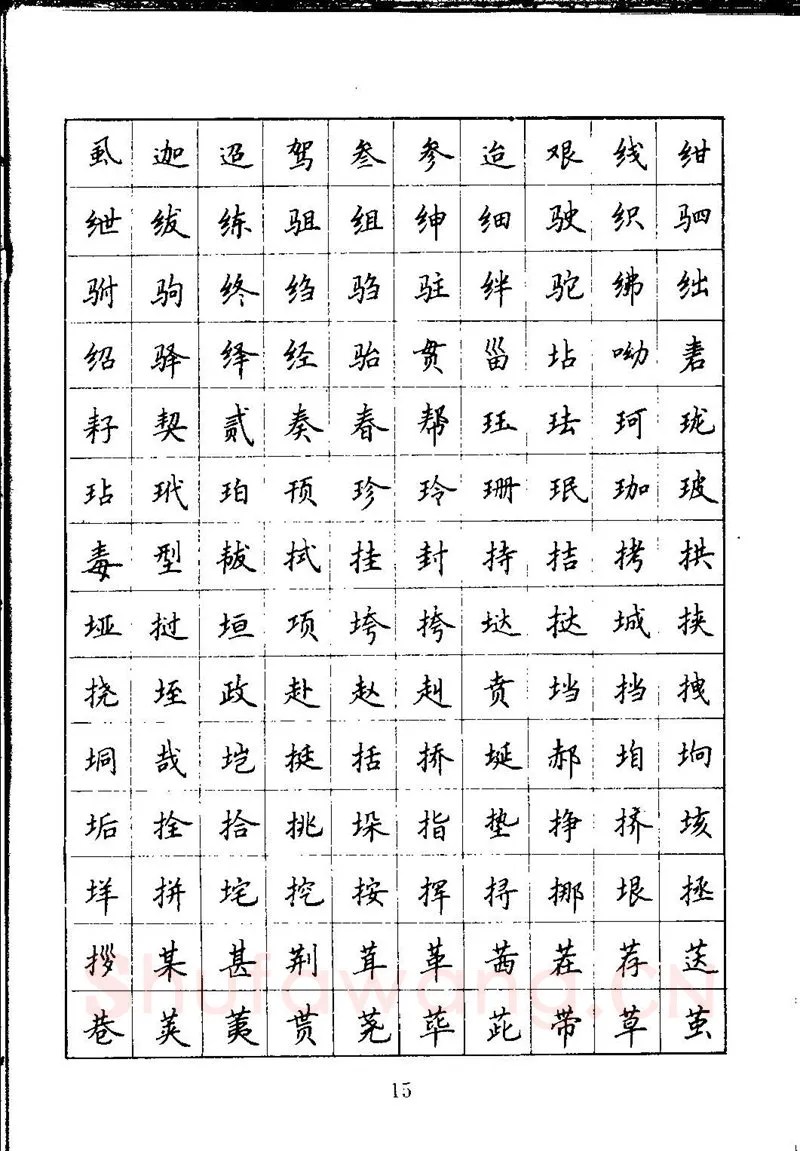 虱 迦 迢 驾 叁 参 迨 艰 线 绀
绁 绂 练 驵 组 绅 细 驶 织 驷
驸 驹 终 绉 驺 驻 绊 驼 绋 绌
绍 驿 绎 经 骀 贯 甾 坫 呦 砉
耔 契 贰 奏 春 帮 珏 珐 珂 珑
玷 玳 珀 顸 珍 玲 珊 珉 珈 玻
毒 型 韨 拭 挂 封 持 拮 拷 拱
垭 挝 垣 项 垮 挎 垯 挞 城 挟
挠 垤 政 赴 赵 赳 贲 垱 挡 拽
垌 哉 垲 挺 括 挢 埏 郝 垍 垧
垢 拴 拾 挑 垛 指 垫 挣 挤 垓
垟 拼 垞 挖 按 挥 挦 挪 垠 拯
拶 某 甚 荆 茸 革 茜 茬 荐 荙
巷 荚 荑 贳 荛 荜 茈 带 草 茧
15
shufawang.cn